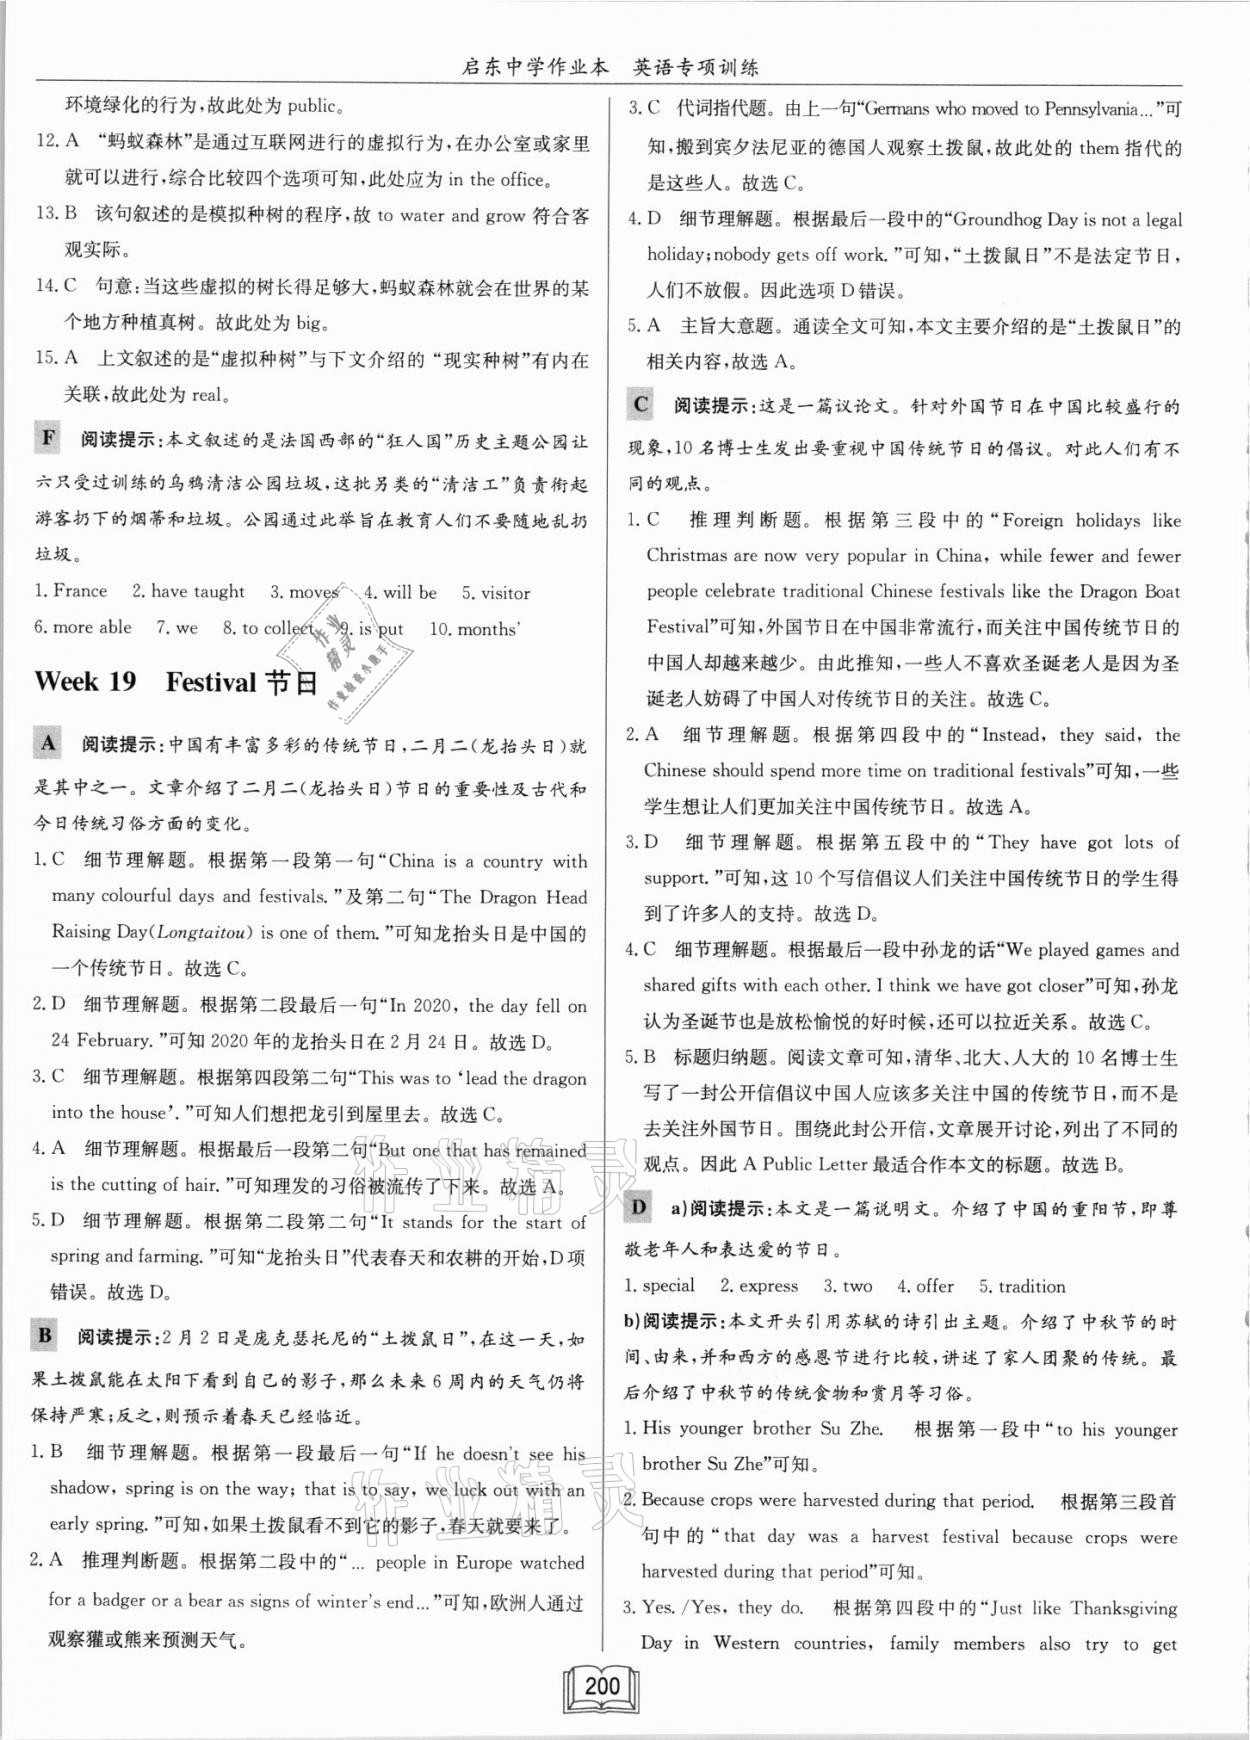 启东中学作业本　英语专项训练
环境绿化的行为,故此处为 public。
12. A　“蚂蚁森林”是通过互联网进行的虚拟行为,在办公室或家里
就可以进行,综合比较四个选项可知,此处应为 in the office。
13. B　该句叙述的是模拟种树的程序,故 to water and grow 符合客
观实际。
14. C　句意:当这些虚拟的树长得足够大,蚂蚁森林就会在世界的某
个地方种植真树。故此处为 big。
15. A　上文叙述的是“虚拟种树”与下文介绍的 “现实种树”有内在
关联,故此处为 real。
F　阅读提示:本文叙述的是法国西部的“狂人国”历史主题公园让
六只受过训练的乌鸦清洁公园垃圾,这批另类的“清洁工”负责衔起
游客扔下的烟蒂和垃圾。公园通过此举旨在教育人们不要随地乱扔
垃圾。
1. France　2. have taught　3. moves　4. will be　5. visitor
6. more able　7. we　8. to collect　9. is put　10. months'
Week 19　Festival 节日
A　阅读提示:中国有丰富多彩的传统节日,二月二(龙抬头日)就
是其中之一。文章介绍了二月二(龙抬头日)节日的重要性及古代和
今日传统习俗方面的变化。
1. C　细节理解题。根据第一段第一句“China is a country with
many colourful days and festivals. ”及第二句“The Dragon Head
Raising Day(Longtaitou) is one of them. ”可知龙抬头日是中国的
一个传统节日。故选 C。
2. D　细节理解题。根据第二段最后一句“In 2020, the day fell on
24 February. ”可知 2020 年的龙抬头日在 2 月 24 日。故选 D。
3. C　细节理解题。根据第四段第二句“This was to ‘lead the dragon
into the house’. ”可知人们想把龙引到屋里去。故选 C。
4. A　细节理解题。根据最后一段第二句“But one that has remained
is the cutting of hair. ”可知理发的习俗被流传了下来。故选 A。
5. D　细节理解题。根据第二段第二句“It stands for the start of
spring and farming. ”可知“龙抬头日”代表春天和农耕的开始,D 项
错误。故选 D。
B　阅读提示:2 月 2 日是庞克瑟托尼的“土拨鼠日”,在这一天,如
果土拨鼠能在太阳下看到自己的影子,那么未来 6 周内的天气仍将
保持严寒;反之,则预示着春天已经临近。
1. B　细节理解题。根据第一段最后一句“If he doesn't see his
shadow, spring is on the way; that is to say, we luck out with an
early spring. ”可知,如果土拨鼠看不到它的影子,春天就要来了。
2. A　推理判断题。根据第二段中的“… people in Europe watched
for a badger or a bear as signs of winter's end…”可知,欧洲人通过
观察獾或熊来预测天气。
3. C　代词指代题。由上一句“Germans who moved to Pennsylvania…”可
知,搬到宾夕法尼亚的德国人观察土拨鼠,故此处的 them 指代的
是这些人。故选 C。
4. D　细节理解题。根据最后一段中的“Groundhog Day is not a legal
holiday;nobody gets off work. ”可知,“土拨鼠日”不是法定节日,
人们不放假。因此选项 D 错误。
5. A　主旨大意题。通读全文可知,本文主要介绍的是“土拨鼠日”的
相关内容,故选 A。
C　阅读提示:这是一篇议论文。针对外国节日在中国比较盛行的
现象,10 名博士生发出要重视中国传统节日的倡议。对此人们有不
同的观点。
1. C　推理判断题。根据第三段中的“Foreign holidays like
Christmas are now very popular in China, while fewer and fewer
people celebrate traditional Chinese festivals like the Dragon Boat
Festival”可知,外国节日在中国非常流行,而关注中国传统节日的
中国人却越来越少。由此推知,一些人不喜欢圣诞老人是因为圣
诞老人妨碍了中国人对传统节日的关注。故选 C。
2. A　细节理解题。根据第四段中的“Instead, they said, the
Chinese should spend more time on traditional festivals”可知,一些
学生想让人们更加关注中国传统节日。故选 A。
3. D　细节理解题。根据第五段中的“They have got lots of
support. ”可知,这 10 个写信倡议人们关注中国传统节日的学生得
到了许多人的支持。故选 D。
4. C　细节理解题。根据最后一段中孙龙的话“We played games and
shared gifts with each other. I think we have got closer”可知,孙龙
认为圣诞节也是放松愉悦的好时候,还可以拉近关系。故选 C。
5. B　标题归纳题。阅读文章可知,清华、北大、人大的 10 名博士生
写了一封公开信倡议中国人应该多关注中国的传统节日,而不是
去关注外国节日。围绕此封公开信,文章展开讨论,列出了不同的
观点。因此 A Public Letter 最适合作本文的标题。故选 B。
D　a)阅读提示:本文是一篇说明文。介绍了中国的重阳节,即尊
敬老年人和表达爱的节日。
1. special　2. express　3. two　4. offer　5. tradition
b)阅读提示:本文开头引用苏轼的诗引出主题。介绍了中秋节的时
间、由来,并和西方的感恩节进行比较,讲述了家人团聚的传统。最
后介绍了中秋节的传统食物和赏月等习俗。
1. His younger brother Su Zhe.　根据第一段中“to his younger
brother Su Zhe”可知。
2. Because crops were harvested during that period.　根据第三段首
句中的“that day was a harvest festival because crops were
harvested during that period”可知。
3. Yes. /Yes, they do.　根据第四段中的“Just like Thanksgiving
Day in Western countries, family members also try to get
200
作业精灵
作业精灵
作业精灵
作业检查小助手